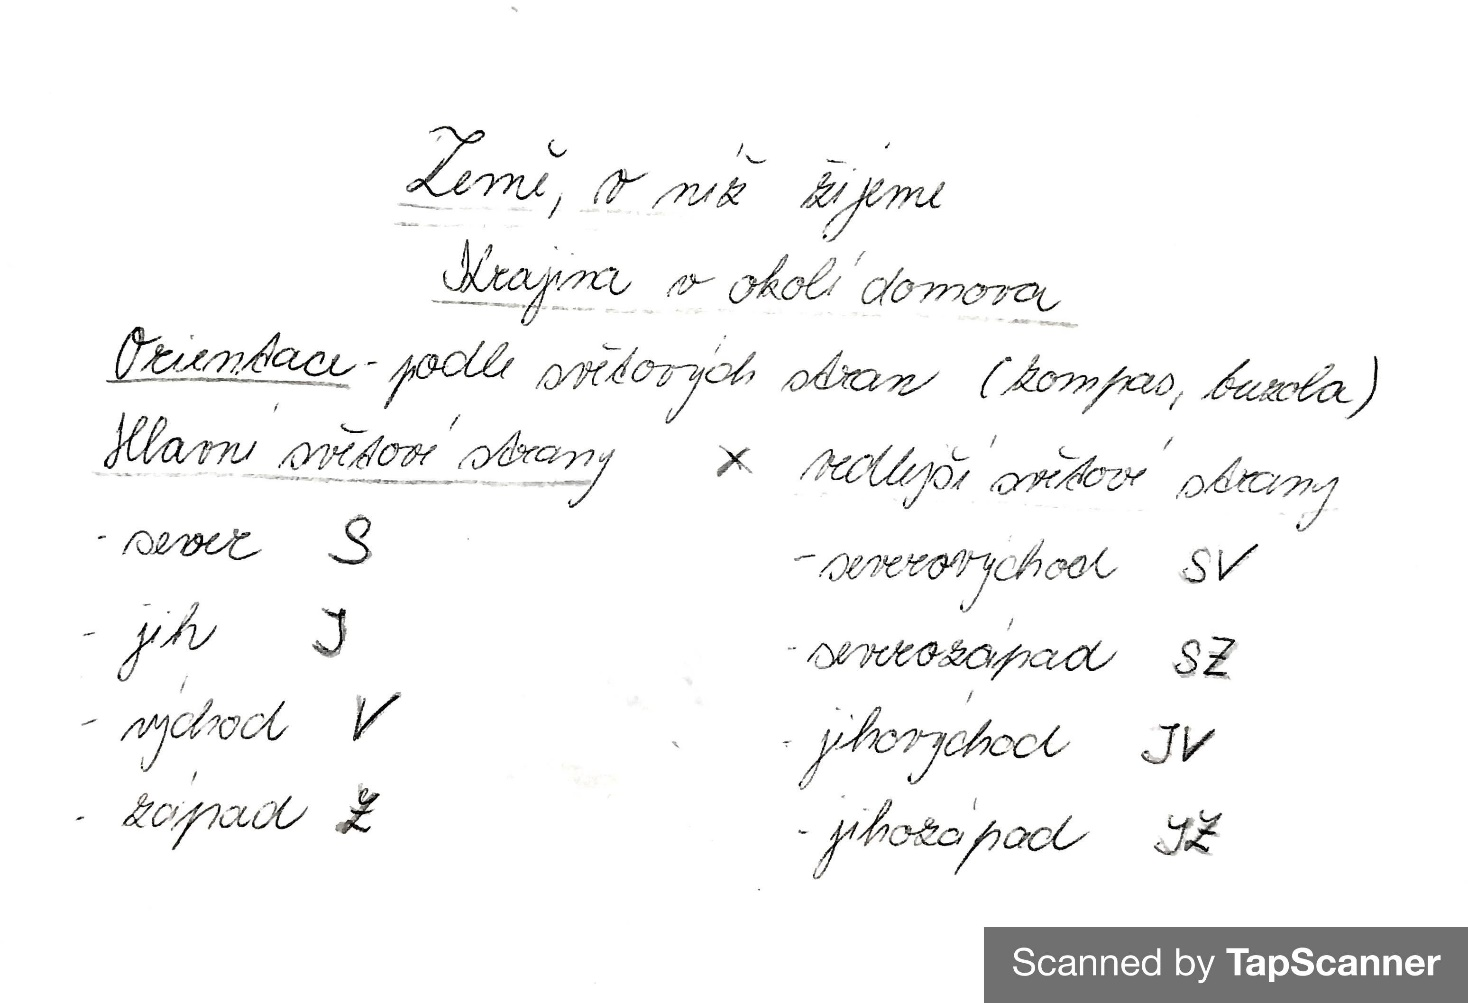 Země, v níž žijeme
Krajina v okolí domova
Orientace - podle světových stran (kompas, buzola)
Hlavní světové strany x vedlejší světové strany
- sever S - severovýchod SV
- jih J - severozápad SZ
- východ V - jihovýchod JV
- západ Z - jihozápad JZ
Scanned by TapScanner